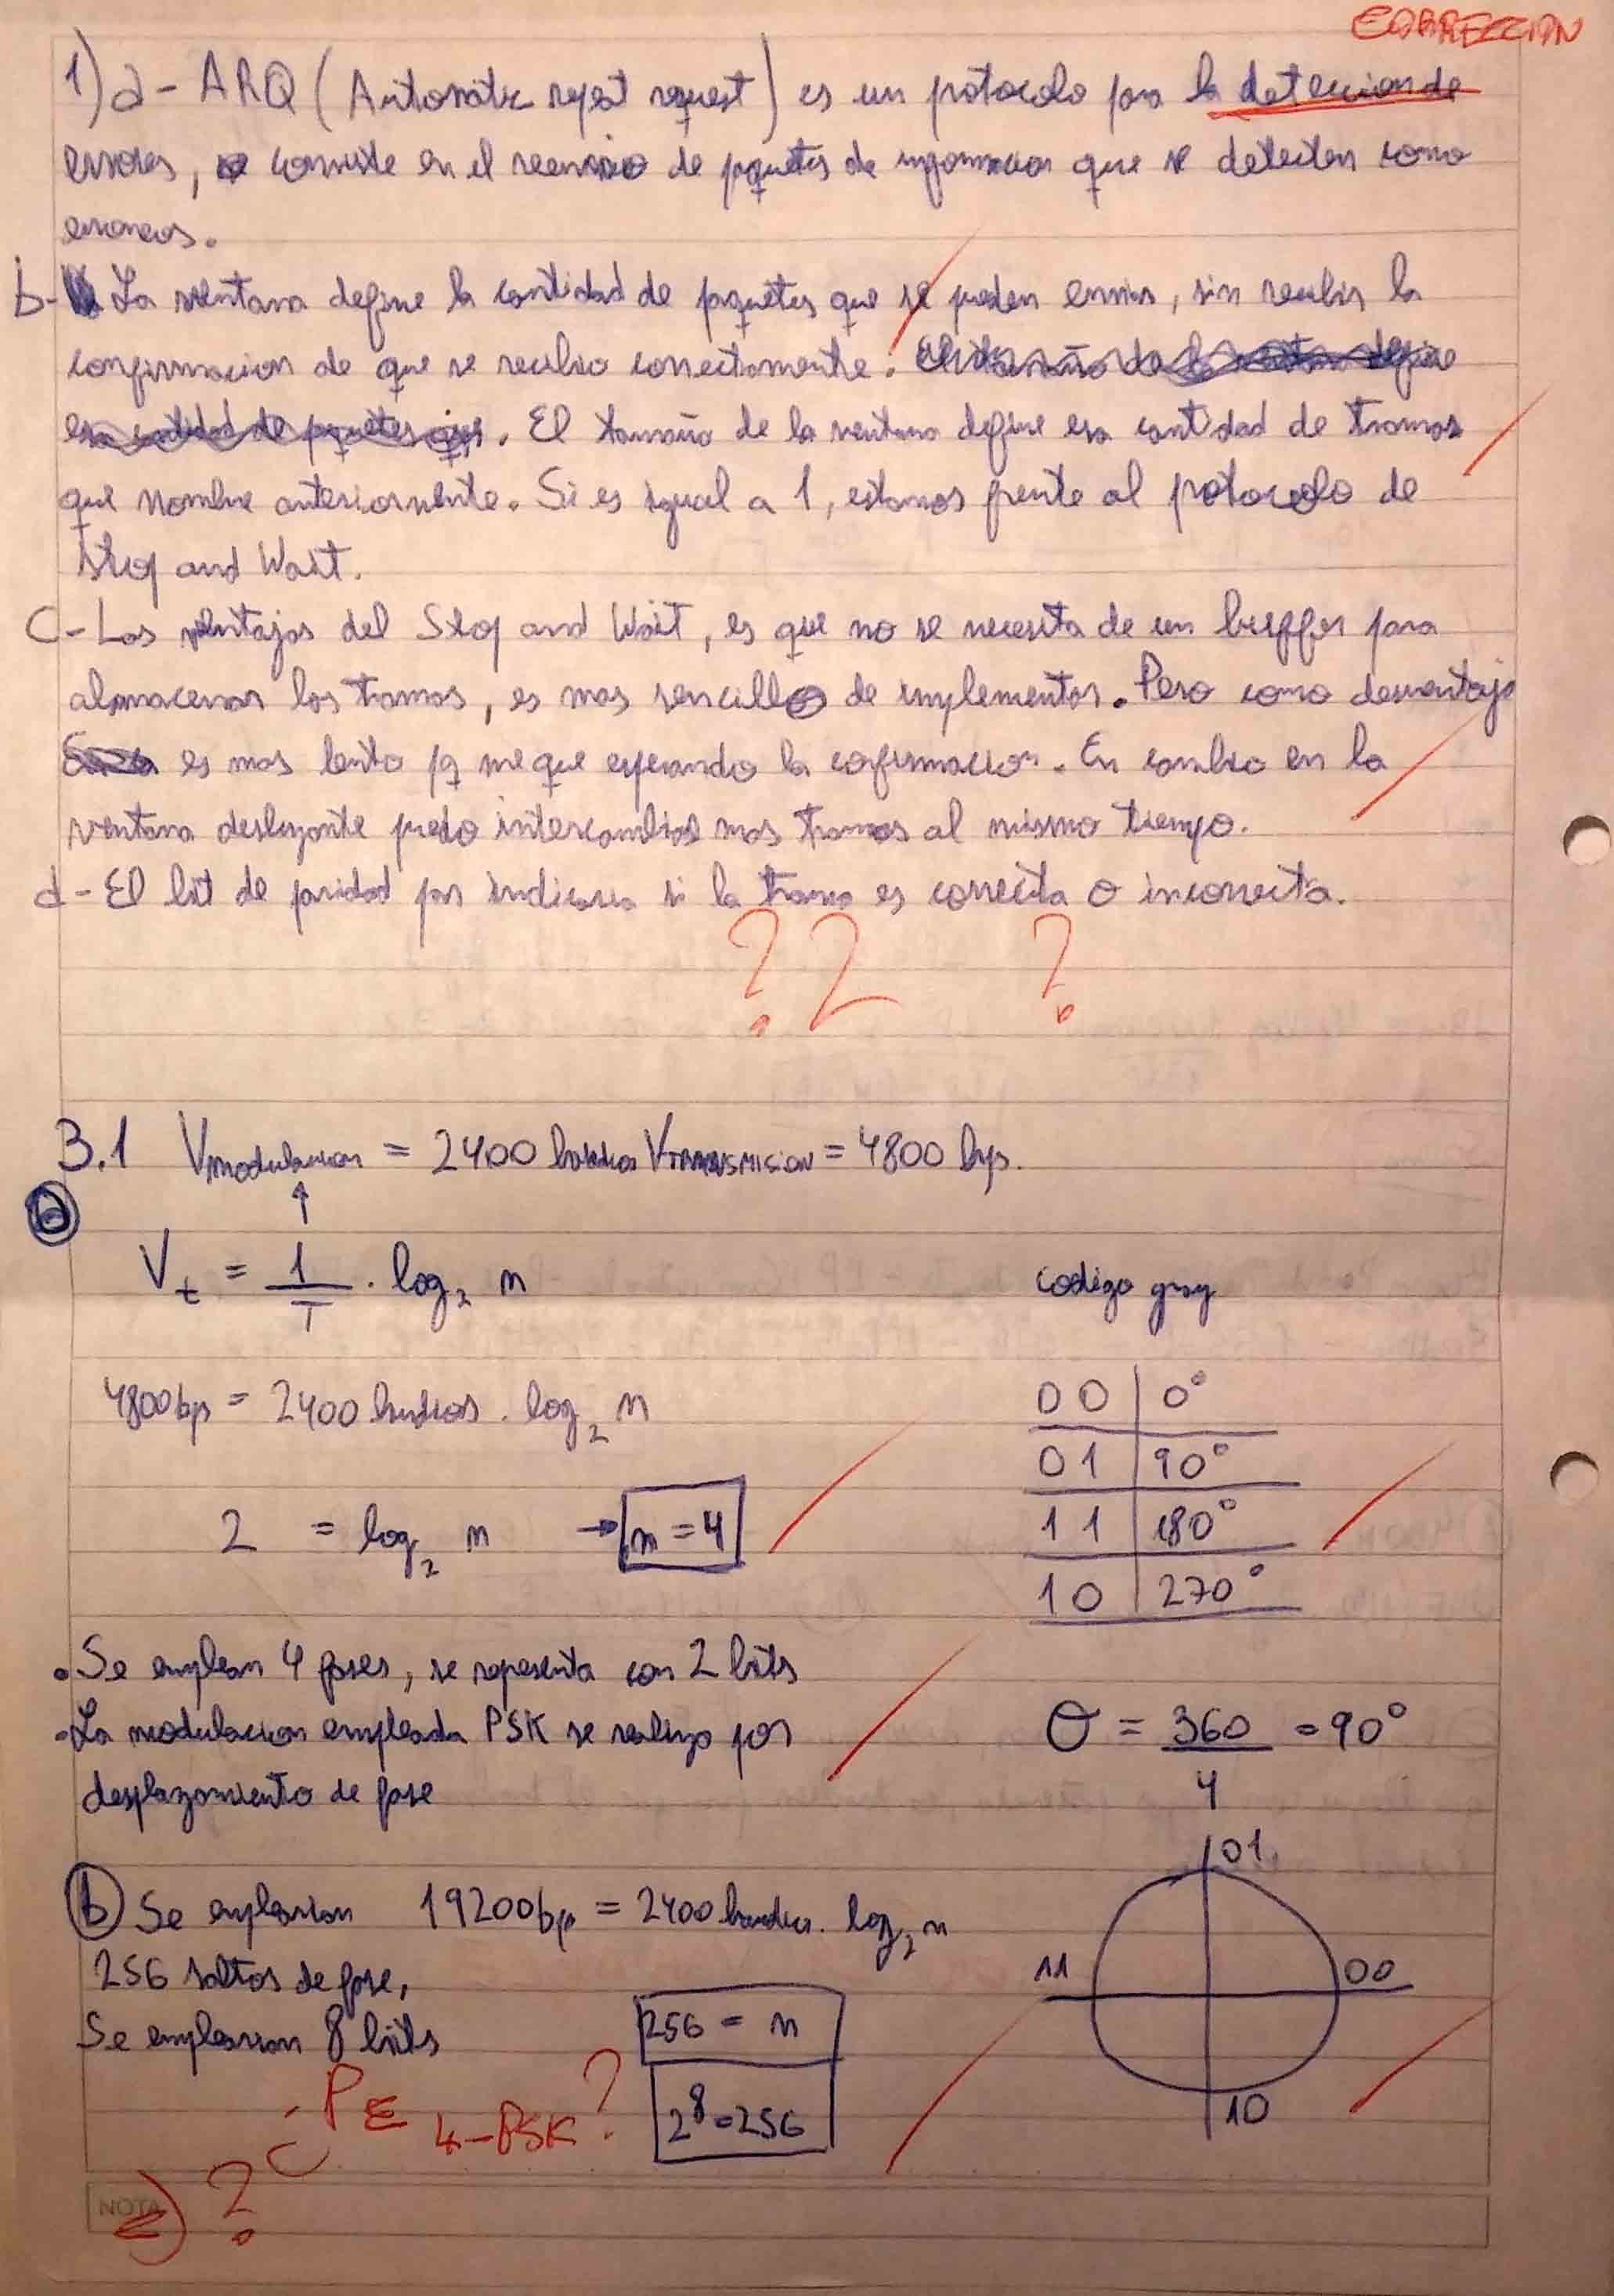 CORRECCION
1) a- ARQ (Automatic repeat request) es un protocolo para la deteccion de
errores, consiste en el reenvio de paquetes de informacion que se detecten como
erroneos.
b- La ventana define la cantidad de paquetes que se pueden enviar, sin recibir la
confirmacion de que se recibio correctamente.
El tamaño de la ventana define esa cantidad de tramas
que nombre anteriormente. Si es igual a 1, estamos frente al protocolo de
Stop and Wait.
C- Las ventajas del Stop and Wait, es que no se necesita de un buffer para
almacenar las tramas, es mas sencillo de implementar. Pero como desventaja
es mas lento pq me que esperando la confirmacion. En cambio en la
ventana deslizante puedo intercambiar mas tramas al mismo tiempo.
d- El bit de paridad para indicar si la trama es correcta o incorrecta.
? 2 ?
3.1 Vmodulacion = 2400 baudios VTRANSMISION = 4800 bps.
a
Vt = 1/T . log2 n
codigo gray
4800bps = 2400 baudios . log2 n
2 = log2 n → n = 4
00 | 0°
01 | 90°
11 | 180°
10 | 270°
• Se emplean 4 fases, se representa con 2 bits
- La modulacion empleada PSK se realiza por
desplazamiento de fase
θ = 360/4 = 90°
b Se emplearian 19200bps = 2400 baudios. log2 n
256 saltos de fase,
Se emplearian 8 bits
256 = n
2^8 = 256
01
11
00
10
PE 4-PSK?
NOTA
?